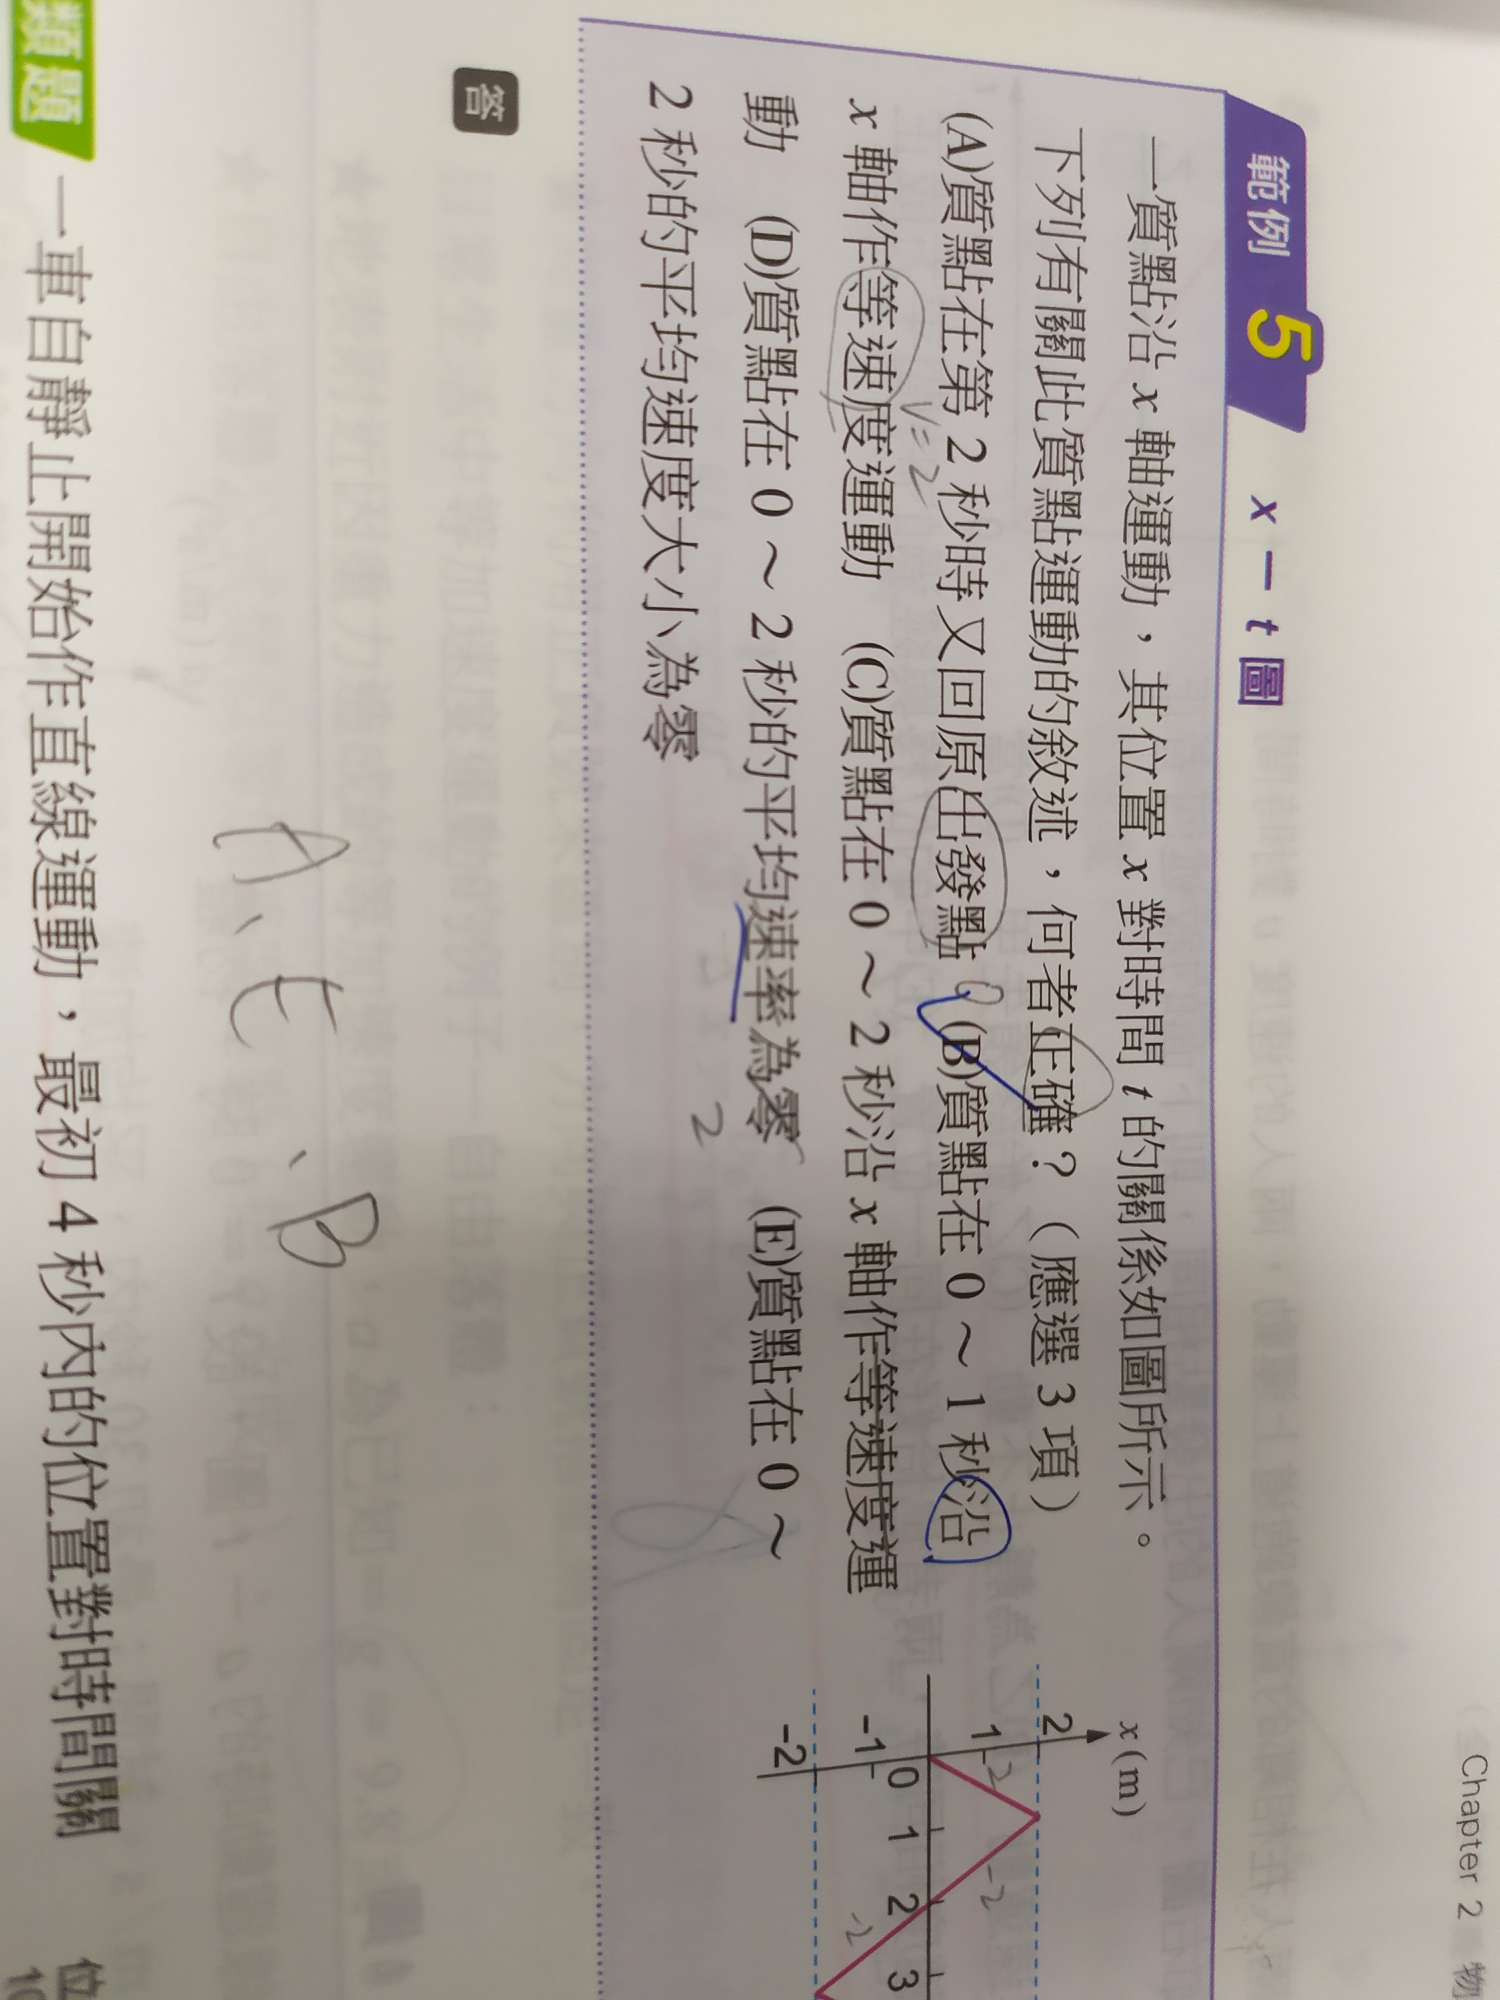 Chapter 2 物
範例 5 x－t 圖
一質點沿 x 軸運動，其位置 x 對時間 t 的關係如圖所示。
下列有關此質點運動的敘述，何者正確？（應選 3 項）
(A)質點在第 2 秒時又回原出發點 (B)質點在 0 ～ 1 秒沿
x 軸作等速度運動 (C)質點在 0 ～ 2 秒沿 x 軸作等速度運
動 (D)質點在 0 ～ 2 秒的平均速率為零 (E)質點在 0 ～
2 秒的平均速度大小為零
v=2
2
x(m)
2
1
0
-1
-2
1 2 3
2
-2
-2
答
A、E、B
類題 一車自靜止開始作直線運動，最初 4 秒內的位置對時間關
位
10